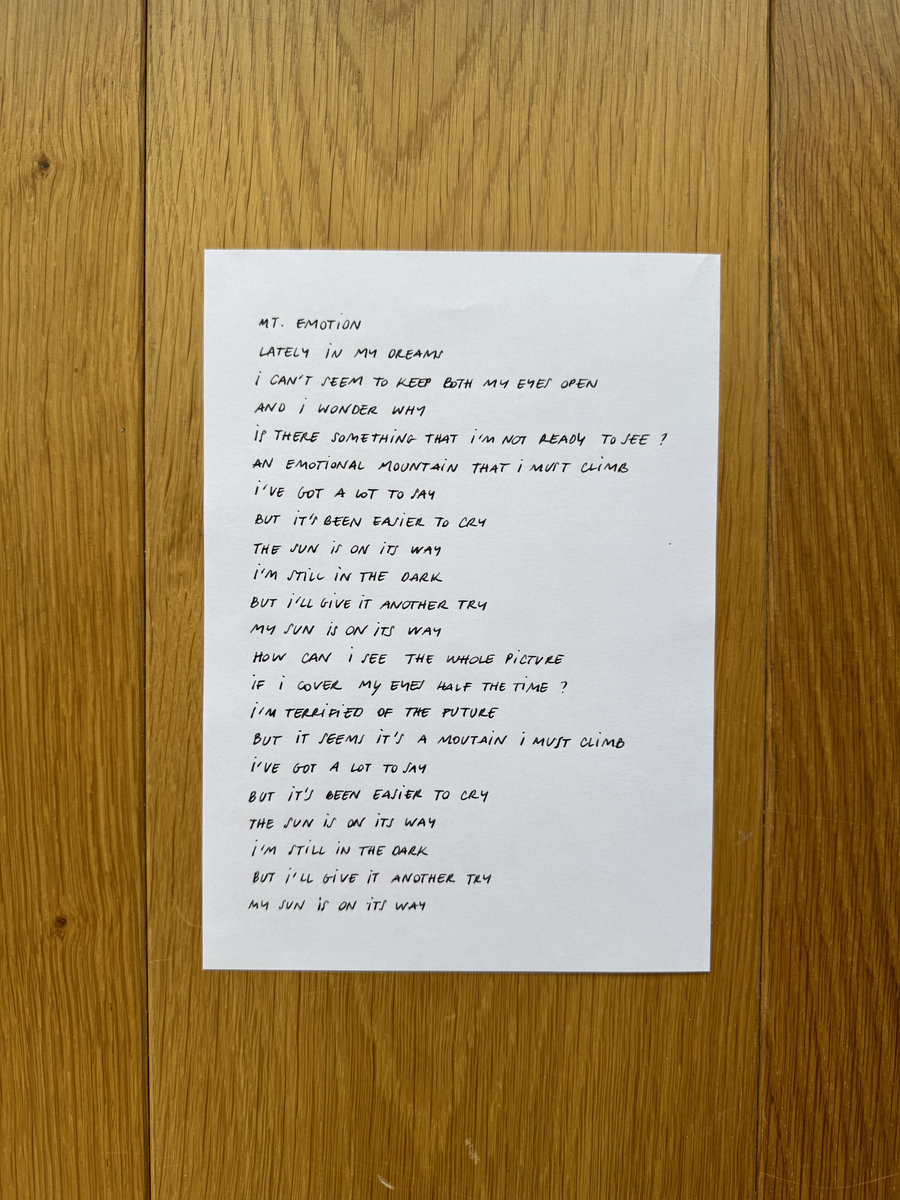 MT. EMOTION
LATELY iN MY DREAMS
i CAN'T SEEM TO KEEP BOTH MY EYES OPEN
AND i WONDER WHY
iS THERE SOMETHING THAT i'M NOT READY TO SEE ?
AN EMOTIONAL MOUNTAiN THAT i MUST CLiMB
i'VE GOT A LOT TO SAY
BUT iT'S BEEN EASiER TO CRY
THE SUN iS ON iTS WAY
i'M STiLL iN THE DARK
BUT i'LL GiVE iT ANOTHER TRY
MY SUN iS ON iTS WAY
HOW CAN i SEE THE WHOLE PiCTURE
iF i COVER MY EYES HALF THE TiME ?
i'M TERRiFiED OF THE FUTURE
BUT iT SEEMS iT'S A MOUTAiN i MUST CLiMB
i'VE GOT A LOT TO SAY
BUT iT'S BEEN EASiER TO CRY
THE SUN iS ON iTS WAY
i'M STiLL iN THE DARK
BUT i'LL GiVE iT ANOTHER TRY
MY SUN iS ON iTS WAY